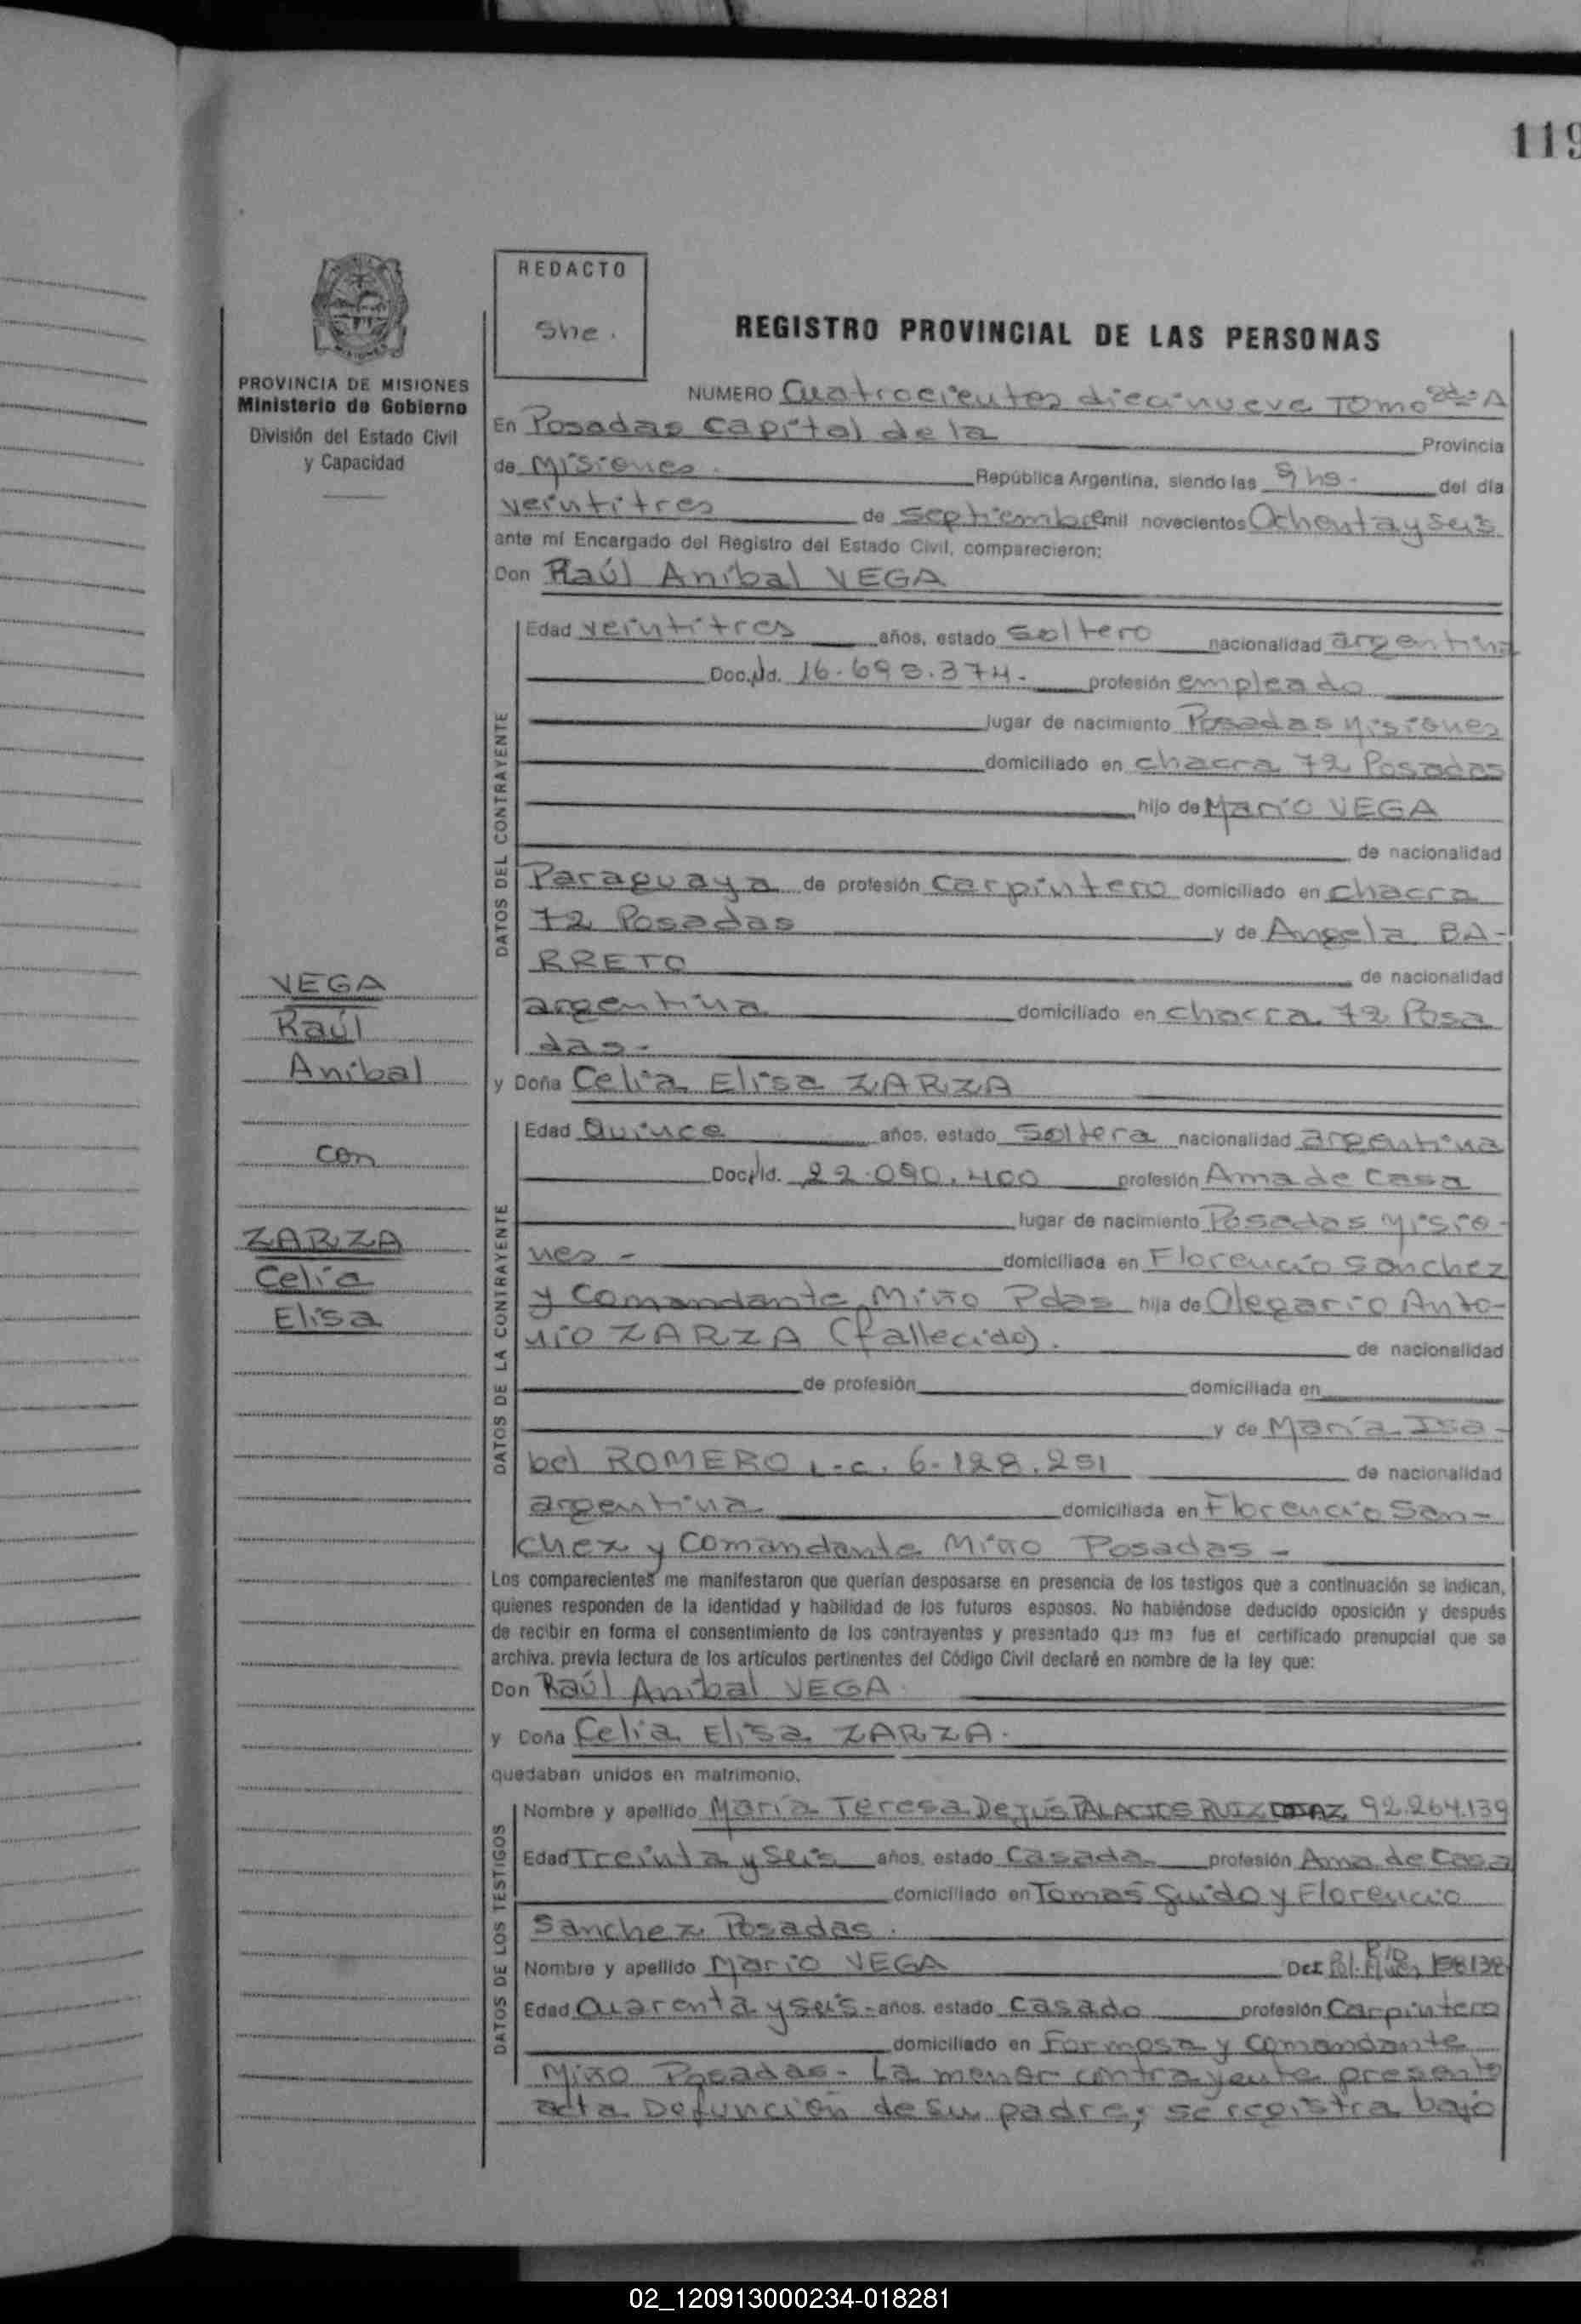 119
REDACTO
She.
REGISTRO PROVINCIAL DE LAS PERSONAS
PROVINCIA DE MISIONES
Ministerio de Gobierno
División del Estado Civil
y Capacidad
NUMERO Cuatrocientos diecinueve TOMO 2do A
En Posadas capital de la Provincia
de Misiones. República Argentina, siendo las 9 hs. del día
veintitres de septiembre mil novecientos Ochenta y seis
ante mí Encargado del Registro del Estado Civil, comparecieron:
Don Raúl Anibal VEGA
DATOS DEL CONTRAYENTE
Edad veintitres años, estado soltero nacionalidad argentina
Doc. Id. 16.693.374. profesión empleado
lugar de nacimiento Posadas Misiones
domiciliado en chacra 72 Posadas
hijo de Mario VEGA
de nacionalidad
Paraguaya de profesión carpintero domiciliado en chacra
72 Posadas y de Angela BA-
RRETO de nacionalidad
argentina domiciliado en chacra 72 Posa
das-
VEGA
Raúl
Anibal
con
ZARZA
Celia
Elisa
y Doña Celia Elisa ZARZA
DATOS DE LA CONTRAYENTE
Edad Quince años, estado soltera nacionalidad argentina
Doc. Id. 22.090.400 profesión Ama de casa
lugar de nacimiento Posadas Misio-
nes- domiciliada en Florencio Sanchez
y Comandante Miño Pdas hija de Olegario Anto-
nio ZARZA (fallecido). de nacionalidad
de profesión domiciliada en
y de María Isa-
bel ROMERO L.C. 6.128.251 de nacionalidad
argentina domiciliada en Florencio San-
chez y Comandante Miño Posadas-
Los comparecientes me manifestaron que querían desposarse en presencia de los testigos que a continuación se indican,
quienes responden de la identidad y habilidad de los futuros esposos. No habiéndose deducido oposición y después
de recibir en forma el consentimiento de los contrayentes y presentado que me fue el certificado prenupcial que se
archiva. previa lectura de los artículos pertinentes del Código Civil declaré en nombre de la ley que:
Don Raúl Anibal VEGA
y Doña Celia Elisa ZARZA.
quedaban unidos en matrimonio.
DATOS DE LOS TESTIGOS
Nombre y apellido María Teresa De Jús PALACIOS RUIZ DIAZ 92.264.139
Edad Treinta y seis años, estado Casada profesión Ama de Casa
domiciliado en Tomas Guido y Florencio
Sanchez Posadas.
Nombre y apellido Mario VEGA Pol. 158138
Edad Cuarenta y seis- años. estado casado profesión Carpintero
domiciliado en Formosa y Comandante
Miño Posadas- La menor contrayente presento
acta Defunción de su padre; se registra bajo
02_120913000234-018281